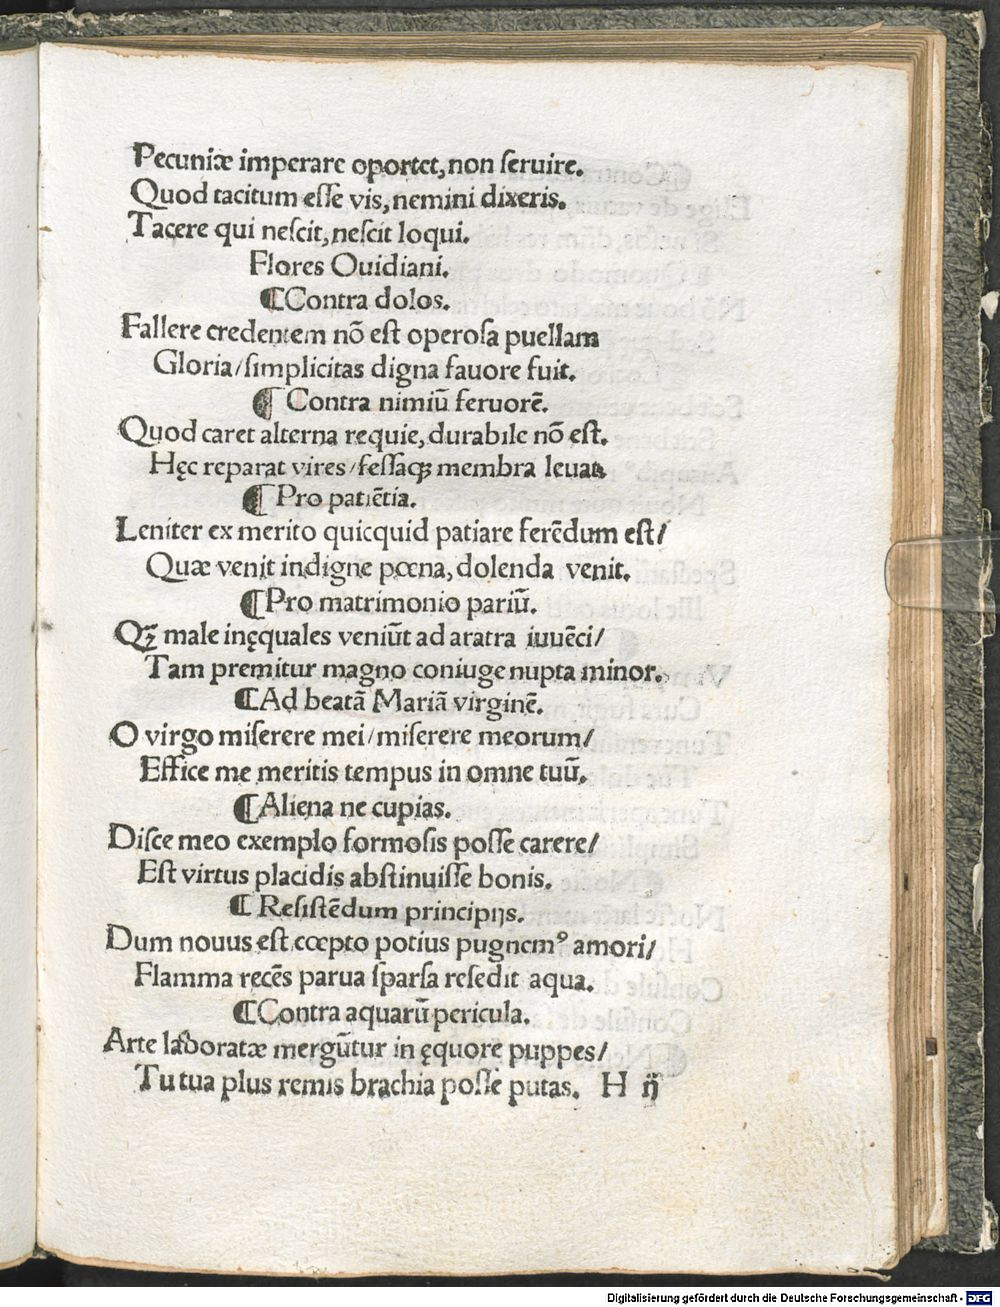 Pecuniæ imperare oportet, non ſeruire.
Quod tacitum eſſe vis, nemini dixeris.
Tacere qui neſcit, neſcit loqui.
Flores Ouidiani.
¶Contra dolos.
Fallere credentem nō eſt operoſa puellam
Gloria/ſimplicitas digna fauore fuit.
¶ Contra nimiū feruorē.
Quod caret alterna requie, durabile nō eſt.
Hęc reparat vires/feſſaqꝫ membra leuat.
¶ Pro patiētia.
Leniter ex merito quicquid patiare ferēdum eſt/
Quæ venit indigne pœna, dolenda venit.
¶Pro matrimonio pariū.
Qꝫ̄ male inęquales veniūt ad aratra iuuēci/
Tam premitur magno coniuge nupta minor.
¶Ad beatā Mariā virginē.
O virgo miſerere mei/miſerere meorum/
Effice me meritis tempus in omne tuū.
¶Aliena ne cupias.
Diſce meo exemplo formoſis poſſe carere/
Eſt virtus placidis abſtinuiſſe bonis.
¶ Reſiſtēdum principijs.
Dum nouus eſt cœpto potius pugnemꝰ amori/
Flamma recēs parua ſparſa reſedit aqua.
¶Contra aquarū pericula.
Arte laboratæ mergūtur in ęquore puppes/
Tu tua plus remis brachia poſſe putas. H ij
Digitalisierung gefördert durch die Deutsche Forschungsgemeinschaft - DFG